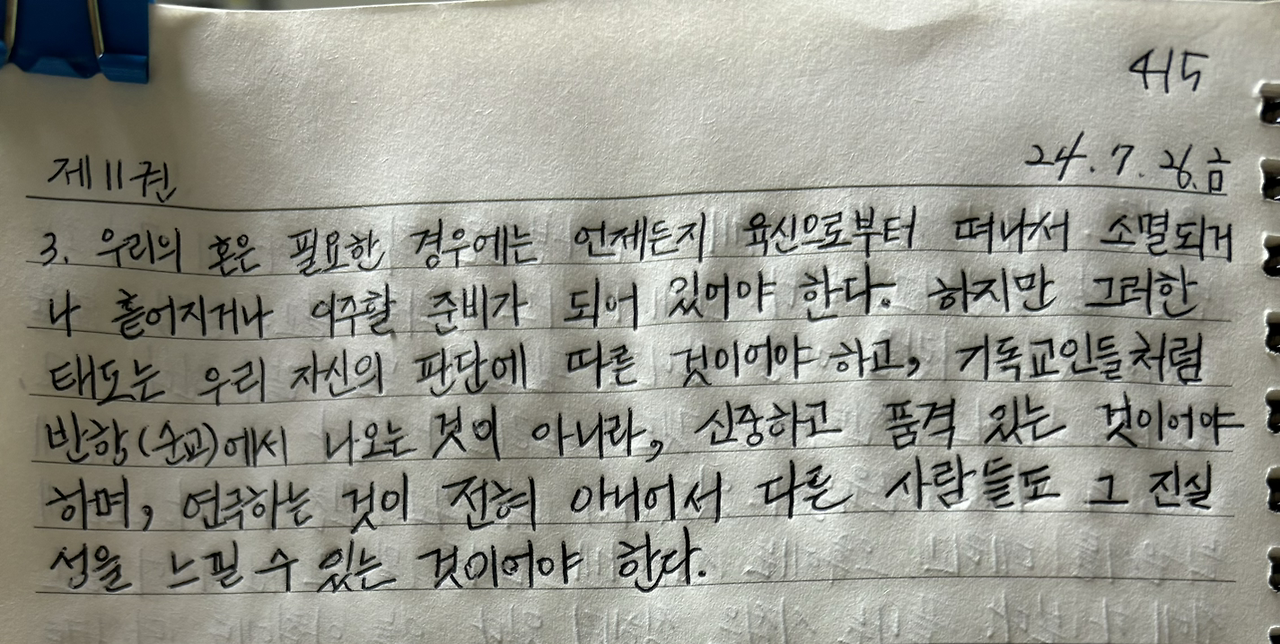 415
제11권
24.7.26.금
3. 우리의 혼은 필요한 경우에는 언제든지 육신으로부터 떠나서 소멸되거
나 흩어지거나 이주할 준비가 되어 있어야 한다. 하지만 그러한
태도는 우리 자신의 판단에 따른 것이어야 하고, 기독교인들처럼
반항(순교)에서 나오는 것이 아니라, 신중하고 품격 있는 것이어야
하며, 연극하는 것이 전혀 아니어서 다른 사람들도 그 진실
성을 느낄 수 있는 것이어야 한다.